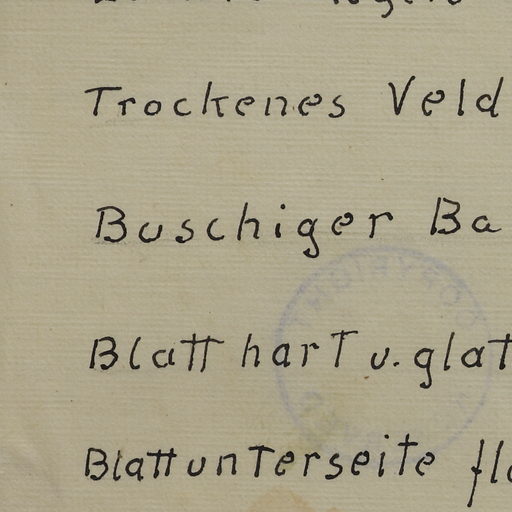 Trockenes Veld
Buschiger Ba
Blatt hart u. glat
Blattunterseite fl